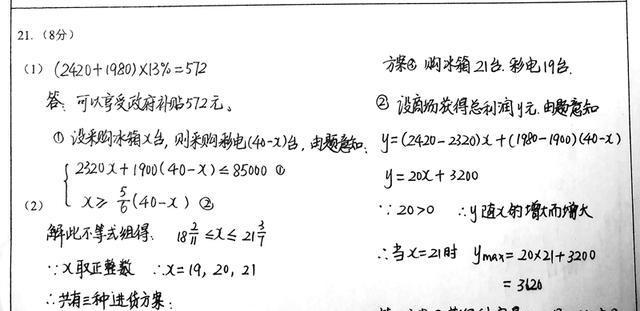 21. (8分)
(1) (2420+1980)×13%=572
答: 可以享受政府补贴572元。
① 设采购冰箱x台, 则采购彩电(40-x)台, 由题意知:
2320x+1900(40-x)≤85000 ①
x≥5/6(40-x) ②
(2)
解此不等式组得: 18 2/11≤x≤21 3/7
∵x取正整数 ∴x=19, 20, 21
∴共有三种进货方案:
方案③ 购冰箱21台. 彩电19台.
② 设商场获得总利润y元. 由题意知
y=(2420-2320)x+(1980-1900)(40-x)
y=20x+3200
∵20>0 ∴y随x的增大而增大
∴当x=21时 ymax=20×21+3200
=3620